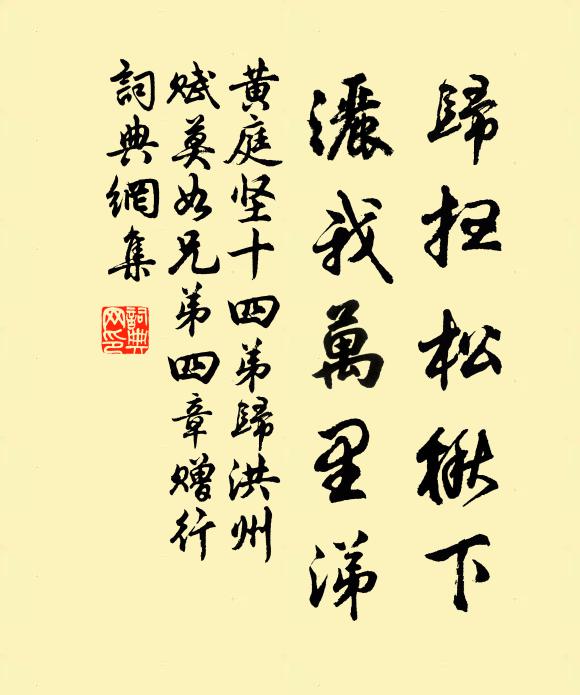 歸扫松楸下
灑我萬里涕
黃庭坚十四弟歸洪州
赋莫如兄弟四章赠行
詞典網集
詞典网印